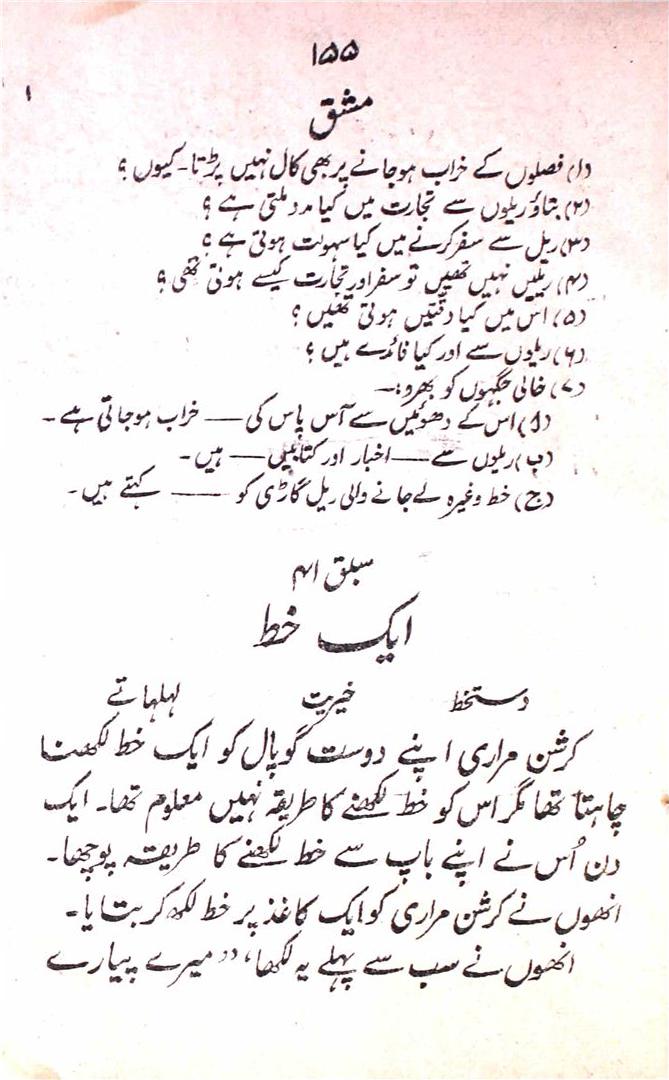 ۱۵۵
مشق
(۱) فصلوں کے خراب ہوجانے پر بھی کال نہیں پڑتا۔ کیوں ؟
(۲) بتاؤ ریلوں سے تجارت میں کیا مدد ملتی ہے ؟
(۳) ریل سے سفر کرنے میں کیا سہولت ہوتی ہے ؟
(۴) ریلیں نہیں تھیں تو سفر اور تجارت کیسے ہوتی تھی ؟
(۵) اس میں کیا دقّتیں ہوتی تھیں ؟
(۶) ریلوں سے اور کیا فائدے ہیں ؟
(۷) خالی جگہوں کو بھرو:۔
(ا) اس کے دھوئیں سے آس پاس کی —— خراب ہوجاتی ہے۔
(ب) ریلوں سے —— اخبار اور کتابیں —— ہیں۔
(ج) خط وغیرہ لے جانے والی ریل گاڑی کو —— کہتے ہیں۔
سبق ۴۱
ایک خط
دستخط خیریت لہلہاتے
کرشن مراری اپنے دوست گوپال کو ایک خط لکھنا
چاہتا تھا مگر اس کو خط لکھنے کا طریقہ نہیں معلوم تھا۔ ایک
دن اُس نے اپنے باپ سے خط لکھنے کا طریقہ پوچھا۔
انھوں نے کرشن مراری کو ایک کاغذ پر خط لکھ کر بتایا۔
انھوں نے سب سے پہلے یہ لکھا، ”میرے پیارے